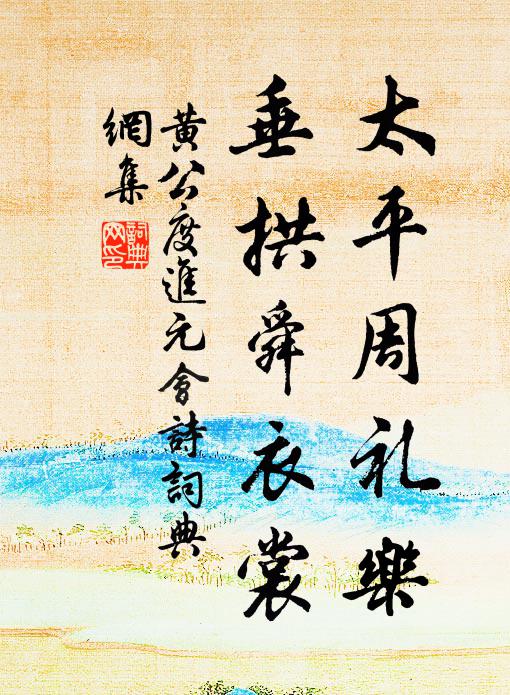 太平周礼樂
垂拱舜衣裳
黄公度進元會詩詞典
網集
詞典
网印